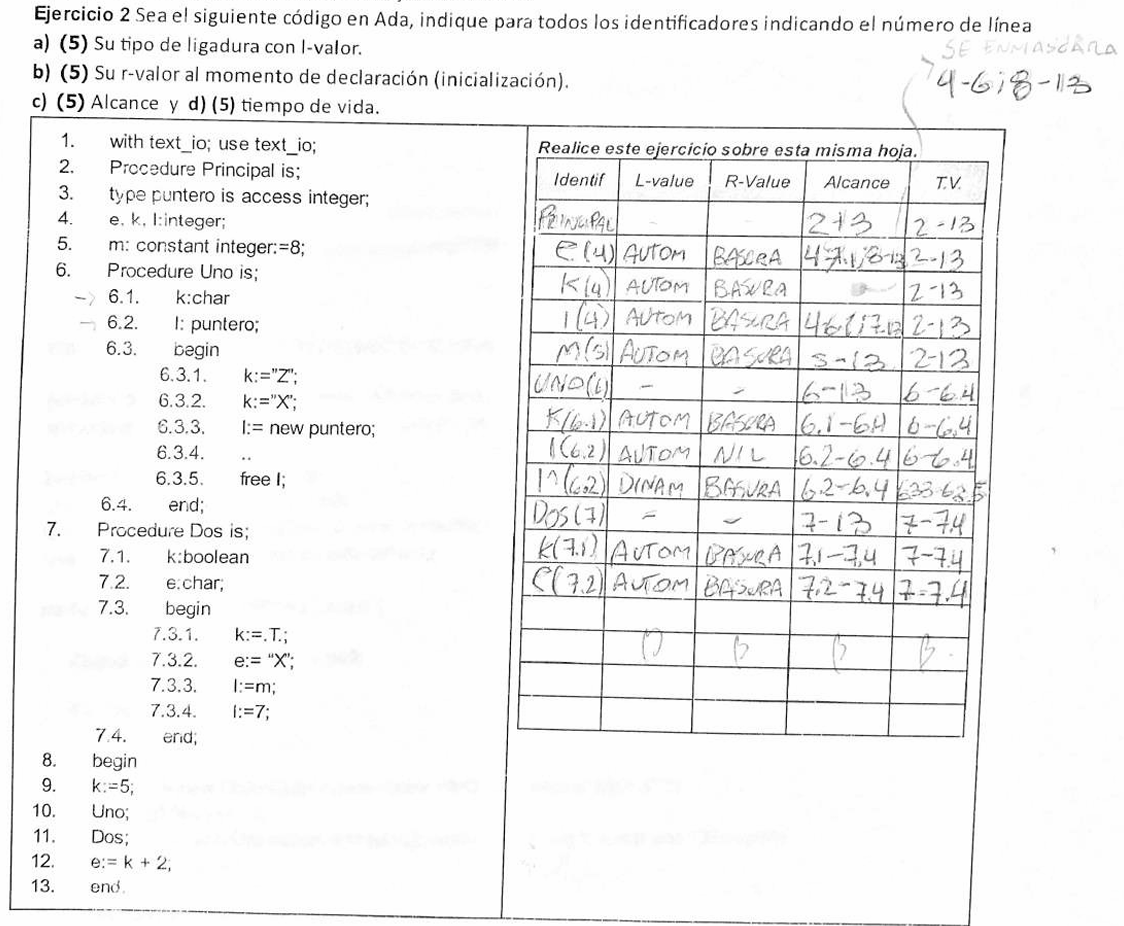 Ejercicio 2 Sea el siguiente código en Ada, indique para todos los identificadores indicando el número de línea
a) (5) Su tipo de ligadura con l-valor.
SE ENMASCARA
b) (5) Su r-valor al momento de declaración (inicialización).
4-6;8-13
c) (5) Alcance y d) (5) tiempo de vida.
1. with text_io; use text_io;
2. Procedure Principal is;
3. type puntero is access integer;
4. e, k, l:integer;
5. m: constant integer:=8;
6. Procedure Uno is;
→ 6.1. k:char
→ 6.2. l: puntero;
6.3. begin
6.3.1. k:="Z";
6.3.2. k:="X";
6.3.3. l:= new puntero;
6.3.4. ..
6.3.5. free l;
6.4. end;
7. Procedure Dos is;
7.1. k:boolean
7.2. e:char;
7.3. begin
7.3.1. k:=.T.;
7.3.2. e:= "X";
7.3.3. l:=m;
7.3.4. l:=7;
7.4. end;
8. begin
9. k:=5;
10. Uno;
11. Dos;
12. e:= k + 2;
13. end.
Realice este ejercicio sobre esta misma hoja.
Identif L-value R-Value Alcance T.V.
PRINCIPAL - - 2-13 2-13
e(4) AUTOM BASURA 2-13
K(4) AUTOM BASURA 2-13
l(4) AUTOM BASURA 2-13
M(5) AUTOM BASURA 5-13 2-13
UNO(6) - - 6-13 6-6.4
K(6.1) AUTOM BASURA 6.1-6.4 6-6.4
l(6.2) AUTOM NIL 6.2-6.4 6-6.4
l^(6.2) DINAM BASURA 6.2-6.4 6.3.3-6.3.5
DOS(7) - - 7-13 7-7.4
K(7.1) AUTOM BASURA 7.1-7.4 7-7.4
e(7.2) AUTOM BASURA 7.2-7.4 7-7.4